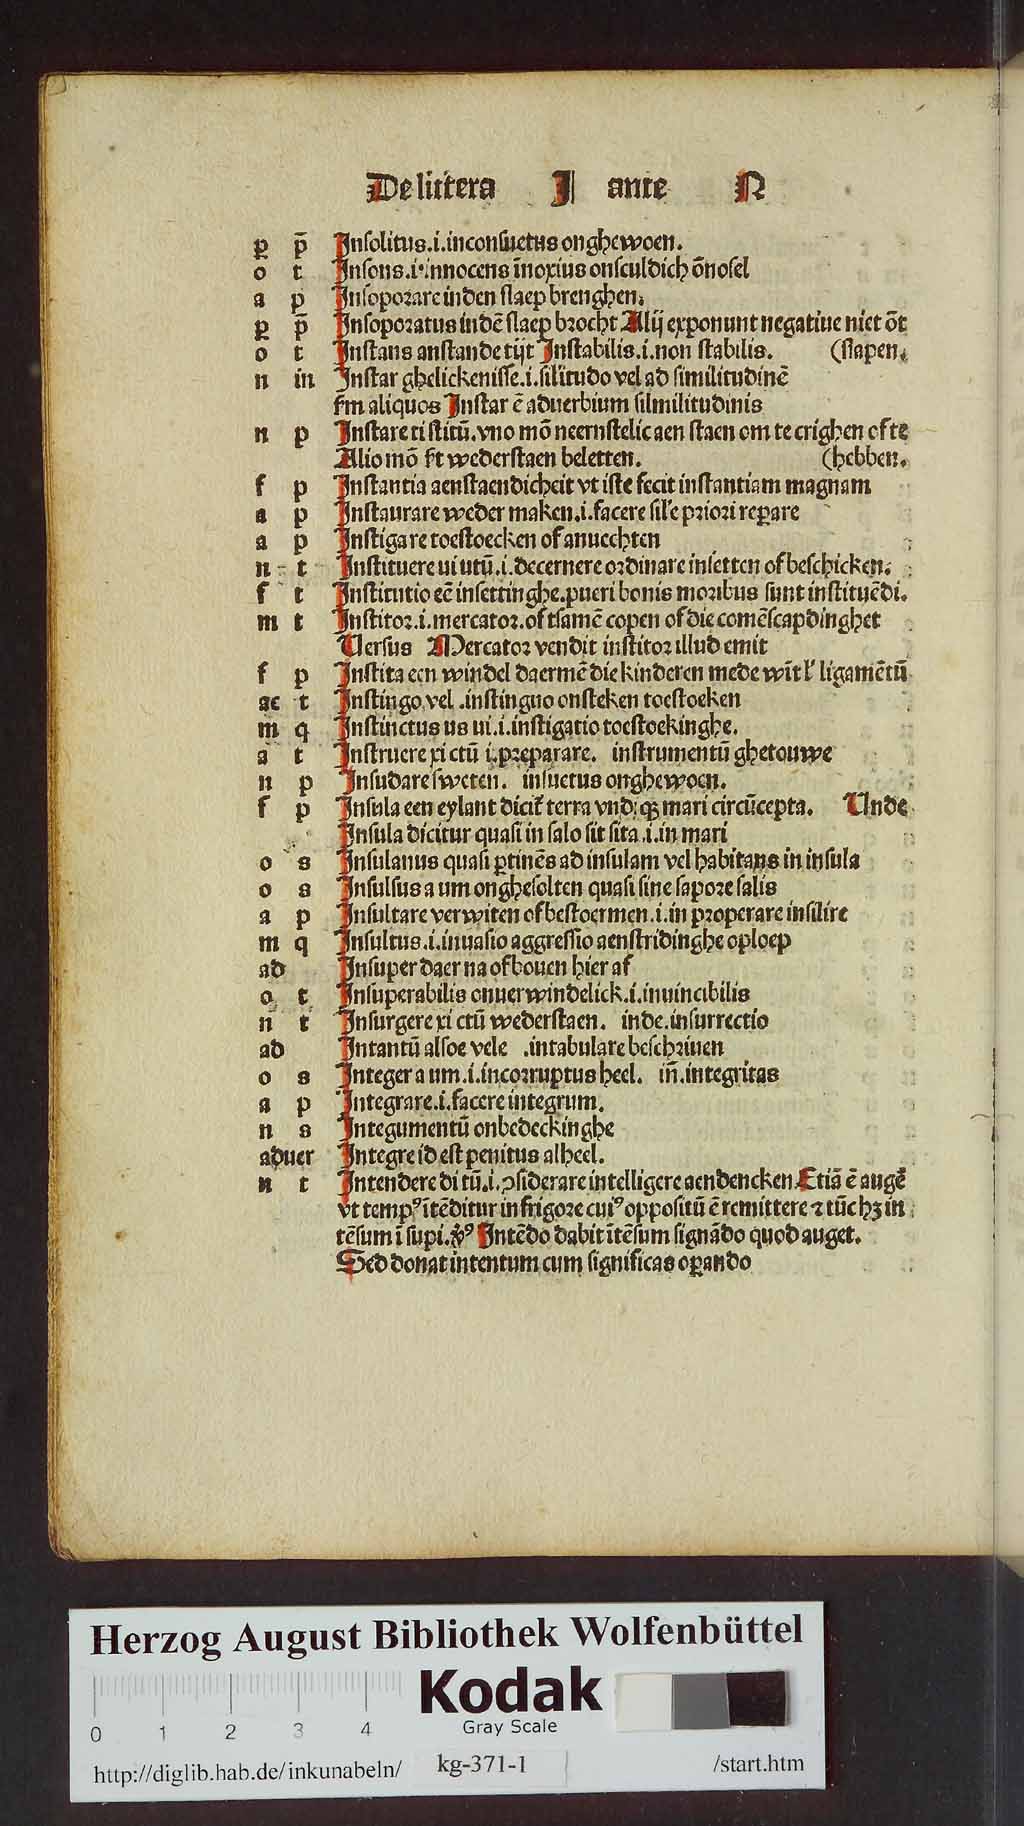 De littera I ante N
ꝑ p̄ Insolitus.i.inconsuetus onghewoen.
o t Insons.i.innocens īnoxius onsculdich ōnosel
a p Insoporare inden slaep brenghen.
ꝑ p̄ Insoporatus indē slaep brocht Alij exponunt negatiue niet ōt
o t Instans anstande tijt Instabilis.i.non stabilis. (slapen.
n in Instar ghelickenisse.i.silitudo vel ad similitudinē
fm aliquos Instar ē aduerbium silmilitudinis
n p Instare ti stitū.vno mō neernstelic aen staen om te crighen ofte
Alio mō st wederstaen beletten. (hebben.
f p Instantia aenstaendicheit vt iste fecit instantiam magnam
a p Instaurare weder maken.i.facere sile priori reꝑare
a p Instigare toestoecken of anuechten
n t Instituere ui utū.i.decernere ordinare insetten of beschicken.
f t Institutio eē insettinghe.pueri bonis moribus sunt instituēdi.
m t Institor.i.mercator.of tsamē copen of die comēscapdinghet
Versus Mercator vendit institor illud emit
f p Instita een windel daermē die kinderen mede wīt l' ligamētū
ac t Instingo vel .instinguo onsteken toestoeken
m q Instinctus us ui.i.instigatio toestoekinghe.
a t Instruere xi ctū i.preparare. instrumentū ghetouwe
n p Insudare sweten. insuetus onghewoen.
f p Insula een eylant dicit̄ terra vndiqꝫ mari circūcepta. Unde
Insula dicitur quasi in salo sit sita.i.in mari
o s Insulanus quasi ꝑtinēs ad insulam vel habitans in insula
o s Insulsus a um onghesolten quasi sine sapore salis
a p Insultare verwiten of bestoermen.i.in properare insilire
m q Insultus.i.inuasio aggressio aenstridinghe oploep
ad Insuper daer na of bouen hier af
o t Insuperabilis onuerwindelick.i.inuincibilis
n t Insurgere xi ctū wederstaen. inde.insurrectio
ad Intantū alsoe vele .intabulare beschriuen
o s Integer a um.i.incorruptus heel. iñ.integritas
a p Integrare.i.facere integrum.
n s Integumentū onbedeckinghe
aduer Integre id est penitus alheel.
n t Intendere di tū.i.ↄsiderare intelligere aendencken Etiā ē augē
vt tempꝰ ītēditur in frigore cuiꝰ oppositū ē remittere ⁊ tūc hꝫ in
tēsum ī supi.v̓ꝰ Intēdo dabit ītēsum signādo quod auget.
Sed donat intentum cum significas oꝑando
Herzog August Bibliothek Wolfenbüttel
Kodak
Gray Scale
0 1 2 3 4
http://diglib.hab.de/inkunabeln/ kg-371-1 /start.htm